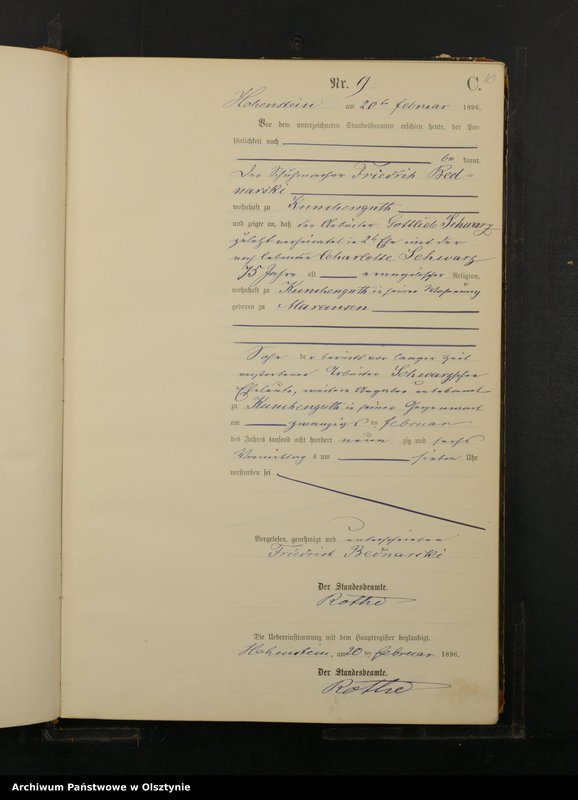 Nr. 9 C. 10
Hohenstein am 20ten Februar 1896.
Vor dem unterzeichneten Standesbeamten erschien heute, der Per-
sönlichkeit nach
be kannt,
der Schuhmacher Friedrich Bed-
narski
wohnhaft zu Kunchenguth
und zeigte an, daß der Arbeiter Gottlieb Schwarz
zuletzt verheiratet in 2te Ehe mit der
noch lebenden Charlotte Schwarz
75 Jahre alt evangelischer Religion,
wohnhaft zu Kunchenguth in seiner Wohnung
geboren zu Maransen
Sohn der bereits vor langer Zeit
verstorbenen Arbeiter Schwarzschen
Eheleute, weitere Angaben unbekannt
zu Kunchenguth in seiner Gegenwart
am zwanzigsten Februar
des Jahrs tausend acht hundert neun zig und sechs
Vormittags um sieben Uhr
verstorben sei
Vorgelesen, genehmigt und unterschrieben
Friedrich Bednarski
Der Standesbeamte.
Rothe
Die Uebereinstimmung mit dem Hauptregister beglaubigt.
Hohenstein, am 20 ten Februar 1896.
Der Standesbeamte.
Rothe
Archiwum Państwowe w Olsztynie